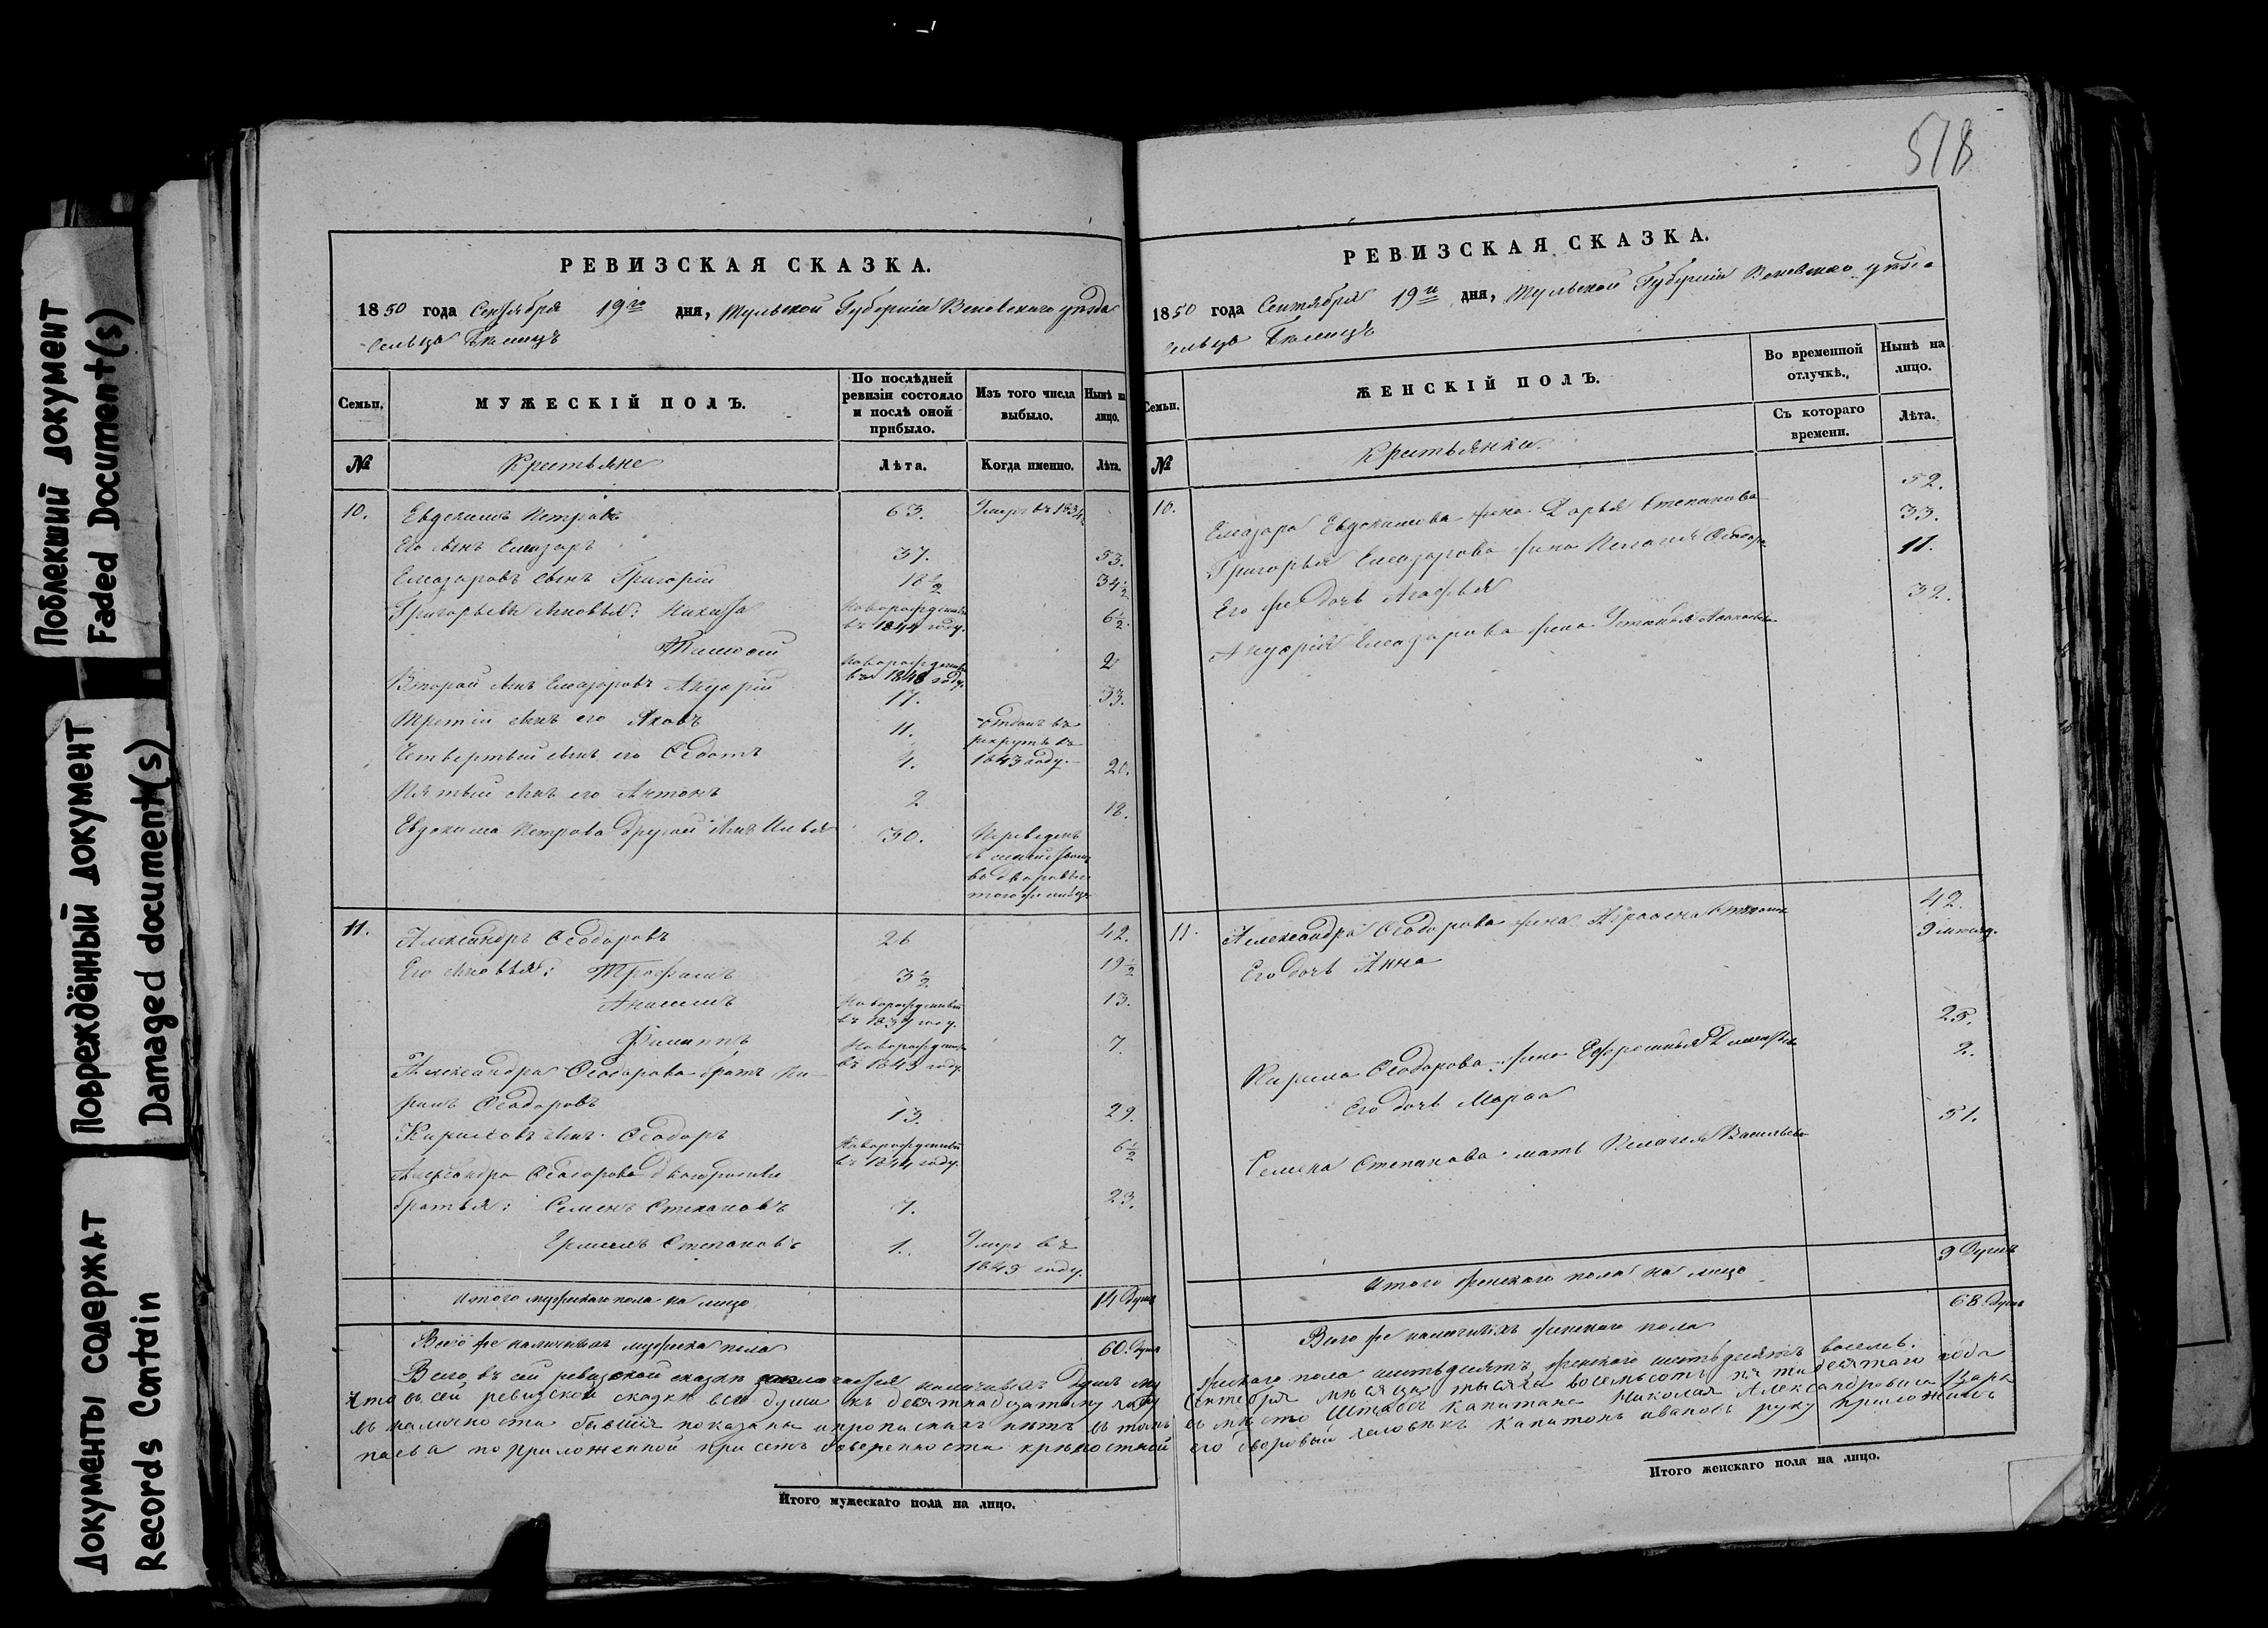 Поблекший документ
Faded Document(s)
Повреждённый документ
Damaged document(s)
Документы содержат
Records Contain
РЕВИЗСКАЯ СКАЗКА.
1850 года Сентября 19го дня, Тульской Губернии Веневского уѣзда
Сельца
Семьи.
МУЖЕСКІЙ ПОЛЪ.
По послѣдней ревизіи состояло и послѣ оной прибыло.
Изъ того числа выбыло.
Нынѣ на лицо.
№
Крестьяне
Лѣта.
Когда именно.
Лѣта.
10. Евдокимъ Петровъ 63. Умеръ въ 1834
Его сынъ Елизаръ 37. 53.
Елизаровъ сынъ Григорій 18½ 34½
Григорьевы сыновья: Никита Новорожденный въ 1844 году. 6½.
Тимофей Новорожденный въ 1848 году. 2
Второй сынъ Елизаровъ 17. 33.
Третій сынъ его Яковъ 11. отданъ въ рекруты въ 1843 году.
Четвертый сынъ его Ѳедотъ 4. 20.
Пятый сынъ его Антонъ 2 18.
Евдокима Петрова другой сынъ Илья 30. Переведенъ съ семействомъ въ дворовые
11. Александръ Ѳедоровъ 26 42.
Его сыновья: Трофимъ 3½ 19½
Анисимъ Новорожденный въ 1837 году. 13.
Филиппъ Новорожденный въ 1843 году. 7.
Александра Ѳедорова братъ Ки-
рилъ Ѳедоровъ 13. 29.
Кириловъ сынъ Ѳедоръ Новорожденный въ 1844 году. 6½
Александра Ѳедорова двоюродные
братья: Семенъ Степановъ 7. 23.
Ермилъ Степановъ 1. Умеръ въ 1849 году.
Итого мужескаго пола на лицо 14 Душъ
Всего же наличныхъ мужеска пола 60. Душъ
Всего въ сей ревизской сказкѣ заключается наличныхъ душъ му
что въ сей ревизской скаскѣ все души къ девятнадцатому числу
въ наличности бывшія показаны и прописныхъ нѣтъ въ томъ
по приложенной при семъ доверенности крѣпостной
Итого мужескаго пола на лицо.
518
РЕВИЗСКАЯ СКАЗКА.
1850 года Сентября 19го дня, Тульской Губерніи Веневскаго уѣзда
Сельца
Семьи.
ЖЕНСКІЙ ПОЛЪ.
Во временной отлучкѣ.
Нынѣ на лицо.
Съ котораго времени.
Лѣта.
№
Крестьянки
10. Елизара Евдокимова жена Дарья Степанова 52.
Григорья Елизарова жена Пелагея 33.
Его же дочь Агафья 11.
Елизарова жена Устинья 32.
11. Александра Ѳедорова жена 42.
Его дочь Анна 9
Кирила Ѳедорова жена 25.
Его дочь Марѳа 2.
Семена Степанова мать Пелагея Васильева 51.
Итого женскаго пола на лицо 9 Душъ
Всего же наличныхъ женскаго пола 68 Душъ
жескаго пола шестьдесятъ, женскаго шестьдесятъ восемь.
Сентября мѣсяца тысяча восемьсотъ пятидесятаго года
въ мѣсто Штабсъ Капитана Николая Александровича
его дворовый человѣкъ Капитонъ Ивановъ руку приложилъ
Итого женскаго пола на лицо.